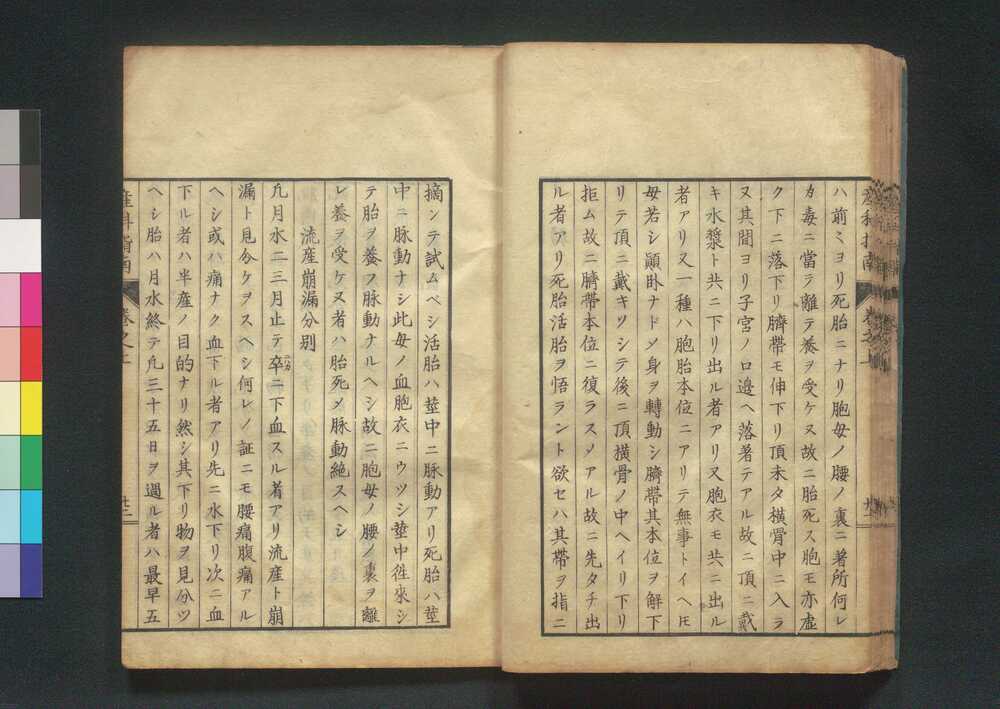 産科指南
巻之上
廿一
ハ前ミヨリ死胎ニナリ胞母ノ腰ノ裏ニ著所何レ
カ毒ニ當テ離テ養ヲ受ケヌ故ニ胎死ス胞モ亦虚
ク下ニ落下リ臍帶モ伸下リ頂未タ横骨中ニ入ラ
ヌ其間ヨリ子宮ノ口邊ヘ落著テアル故ニ頂ニ戴
キ水漿ト共ニ下リ出ル者アリ又胞衣モ共ニ出ル
者アリ又一種ハ胞胎本位ニアリテ無事トイヘ𪜈
母若シ顚卧ナドメ身ヲ轉動シ臍帶其本位ヲ解下
リテ頂ニ戴キツシテ後ニ頂横骨ノ中ヘイリ下リ
拒ム故ニ臍帶本位ニ復ラスメアル故ニ先タチ出
ル者アリ死胎活胎ヲ悟ラント欲セハ其帶ヲ指ニ
摘ンテ試ムベシ活胎ハ莖中ニ脉動アリ死胎ハ莖
中ニ脉動ナシ此母ノ血胞衣ニウツシ莖中徃來シ
テ胎ヲ養フ脉動ナルヘシ故ニ胞母ノ腰ノ裏ヲ離
レ養ヲ受ケヌ者ハ胎死メ脉動絶スヘシ
流産崩漏分别
凢月水二三月止テ卒ニ下血スル者アリ流産ト崩
漏ト見分ケヲスヘシ何レノ証ニモ腰痛腹痛アル
ヘシ或ハ痛ナク血下ル者アリ先ニ水下リ次ニ血
下ル者ハ半産ノ目的ナリ然シ其下リ物ヲ見分ツ
ヘシ胎ハ月水終テ凢三十五日ヲ過ル者ハ最早五
産科指南
巻之上
廿二